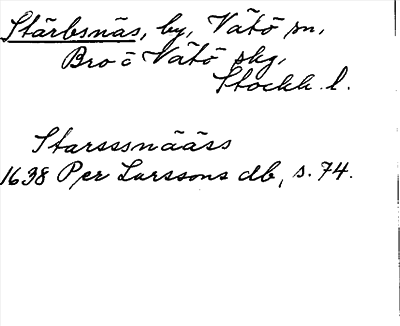 Stärbsnäs, by, Vätö sn,
Bro o Vätö skg,
Stockh. l.
Starssnääss
1638 Per Larssons db, s. 74.